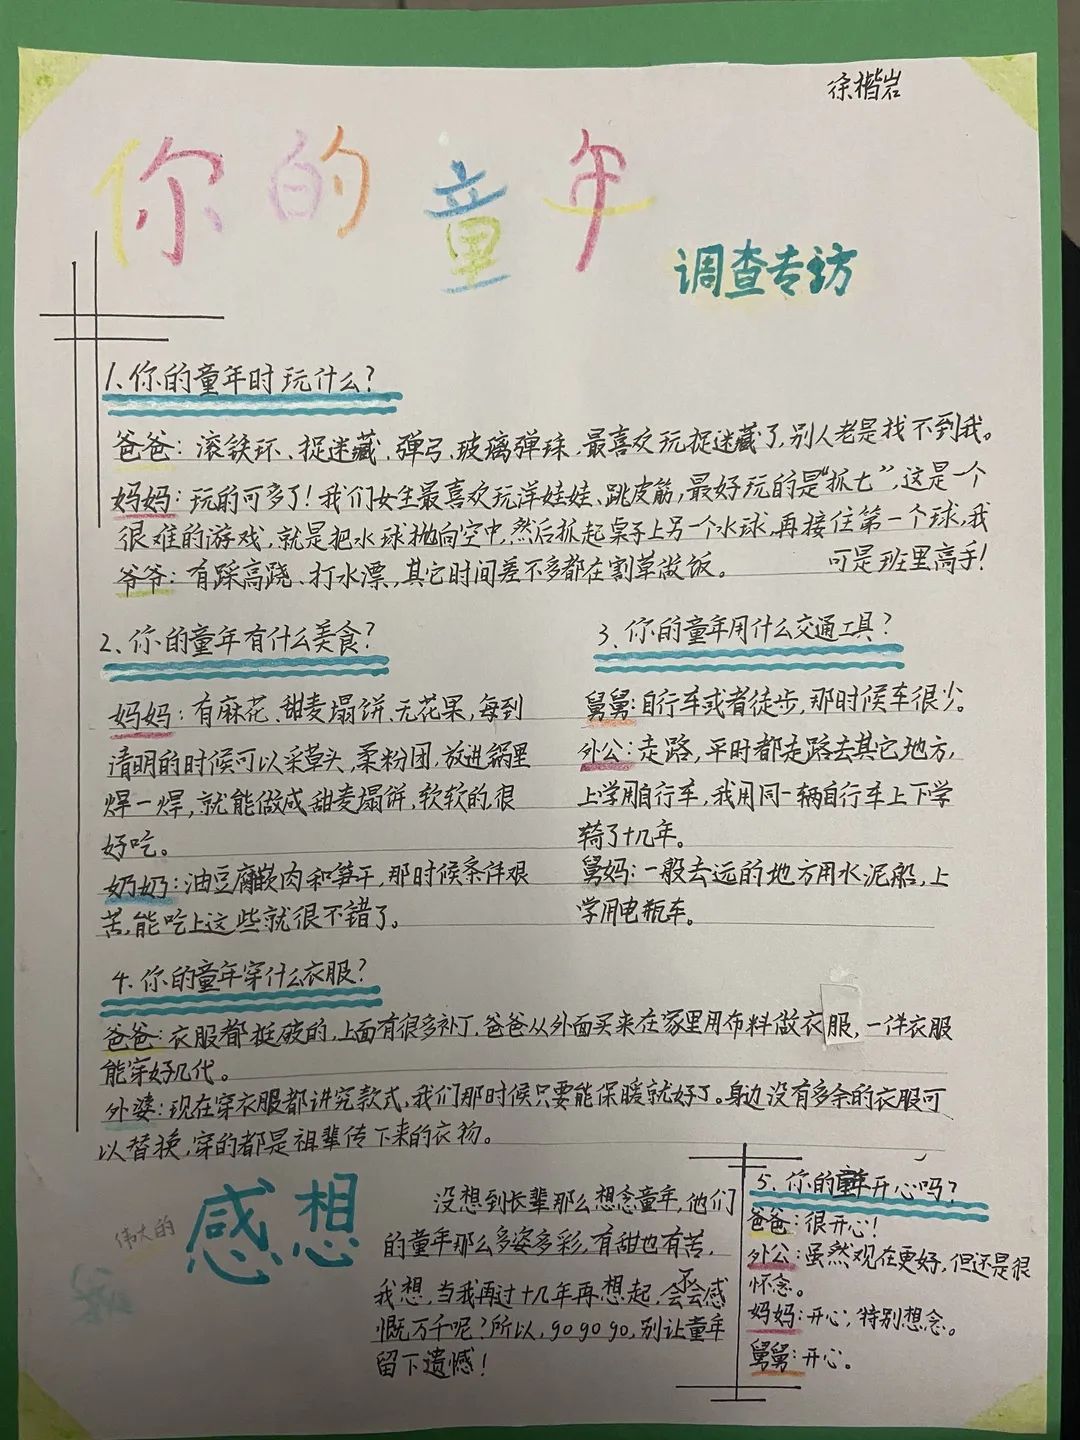 徐楷岩
你的童年
调查专访
1、你的童年时玩什么?
爸爸：滚铁环、捉迷藏、弹弓、玻璃弹珠，最喜欢玩捉迷藏了，别人老是找不到我。
妈妈：玩的可多了！我们女生最喜欢玩洋娃娃、跳皮筋，最好玩的是“抓七”，这是一个
很难的游戏，就是把水球抛向空中，然后抓起桌子上另一个水球，再接住第一个球，我
可是班里高手！
爷爷：有踩高跷、打水漂，其它时间差不多都在割草做饭。
2、你的童年有什么美食?
妈妈：有麻花、甜麦塌饼、无花果，每到
清明的时候可以采草头，柔粉团，放进锅里
焊一焊，就能做成甜麦塌饼，软软的，很
好吃。
奶奶：油豆腐嵌肉和笋干，那时候条件艰
苦，能吃上这些就很不错了。
3、你的童年用什么交通工具?
舅舅：自行车或者徒步，那时候车很少。
外公：走路，平时都走路去其它地方，
上学用自行车，我用同一辆自行车上下学
骑了十几年。
舅妈：一般去远的地方用水泥船，上
学用电瓶车。
4、你的童年穿什么衣服?
爸爸：衣服都挺破的，上面有很多补丁，爸爸从外面买来在家里用布料做衣服，一件衣服
能穿好几代。
外婆：现在穿衣服都讲究款式，我们那时候只要能保暖就好了。身边没有多余的衣服可
以替换，穿的都是祖辈传下来的衣物。
伟大的
感想
没想到长辈那么想念童年，他们
的童年那么多姿多彩，有甜也有苦，
我想，当我再过十几年再想起，会不会感
慨万千呢？所以，go go go，别让童年
留下遗憾！
5、你的童年开心吗?
爸爸：很开心！
外公：虽然现在更好，但还是很
怀念。
妈妈：开心，特别想念。
舅舅：开心。